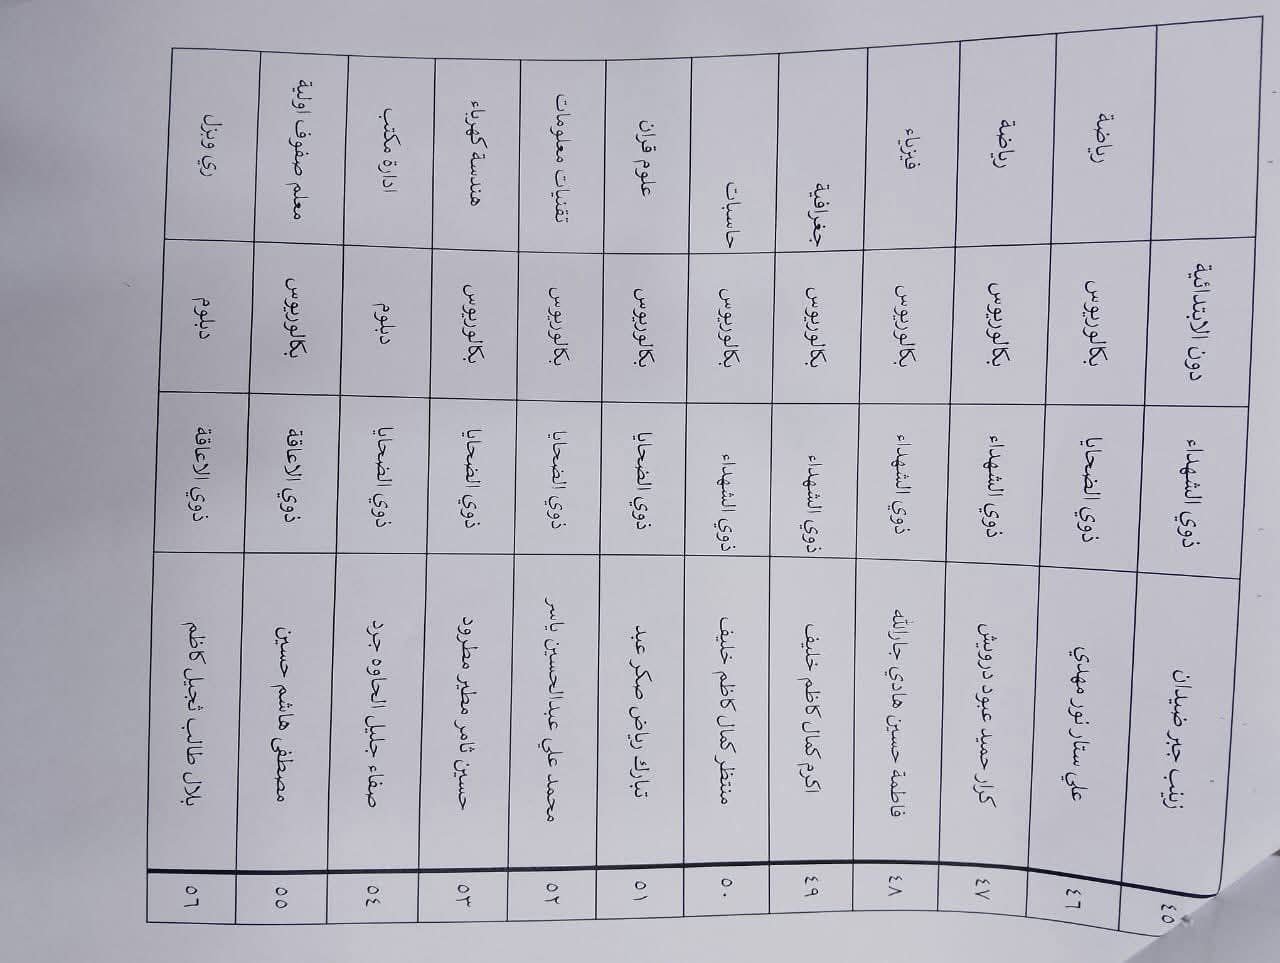 ٤٥ زينب جبر ضيدان ذوي الشهداء دون الابتدائية
٤٦ علي ستار نور مهدي ذوي الضحايا بكالوريوس رياضة
٤٧ كرار حميد عبود درويش ذوي الشهداء بكالوريوس رياضة
٤٨ فاطمة حسين هادي جارالله ذوي الشهداء بكالوريوس فيزياء
٤٩ اكرم كمال كاظم خليف ذوي الشهداء بكالوريوس جغرافية
٥٠ منتظر كمال كاظم خليف ذوي الشهداء بكالوريوس حاسبات
٥١ تبارك رياض صكر عبد ذوي الضحايا بكالوريوس علوم قران
٥٢ محمد علي عبدالحسين ياسر ذوي الضحايا بكالوريوس تقنيات معلومات
٥٣ حسين ثامر مطير مطرود ذوي الضحايا بكالوريوس هندسة كهرباء
٥٤ صفاء جليل الحاوه جرد ذوي الضحايا دبلوم ادارة مكتب
٥٥ مصطفى هاشم حسين ذوي الاعاقة بكالوريوس معلم صفوف اولية
٥٦ بلال طالب ثجيل كاظم ذوي الاعاقة دبلوم ري وبزل